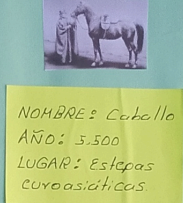 NOMBRE: Caballo
AÑO: 3.500
LUGAR: Estepas
euroasiáticas